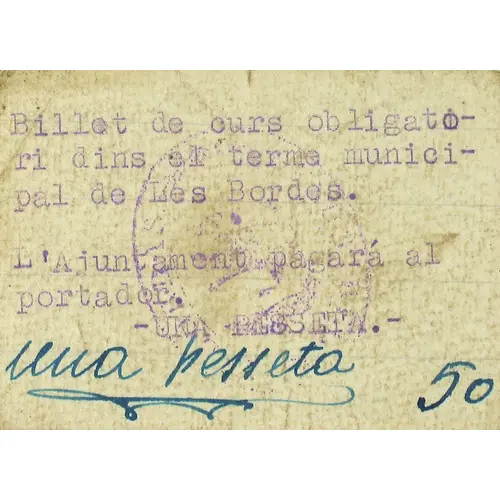 Billet de curs obligato-
ri dins el terme munici-
pal de Les Bordes.
L'Ajuntament pagará al
portador.
-UNA PESSETA.-
una pesseta
50